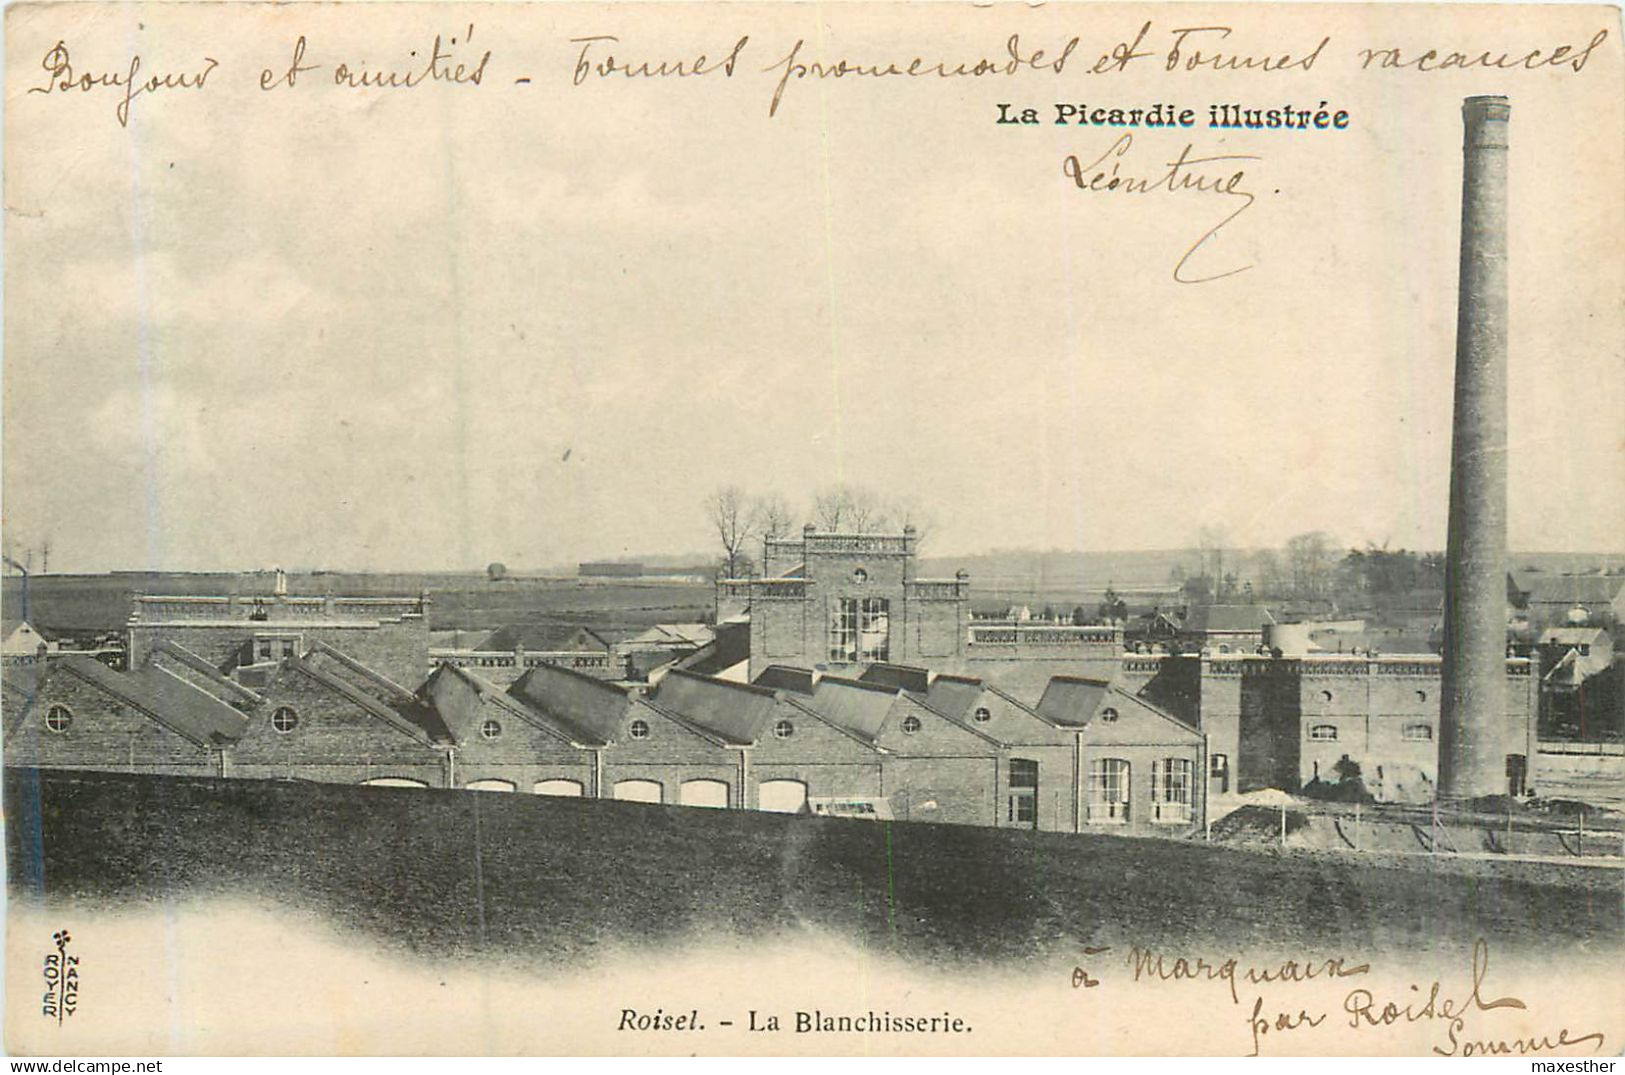 Bonjour et amitiés - Bonnes promenades et bonnes vacances
La Picardie illustrée
Léontine.
ROYER
NANCY
à Marquaix
par Roisel
Somme
Roisel. - La Blanchisserie.
maxesther